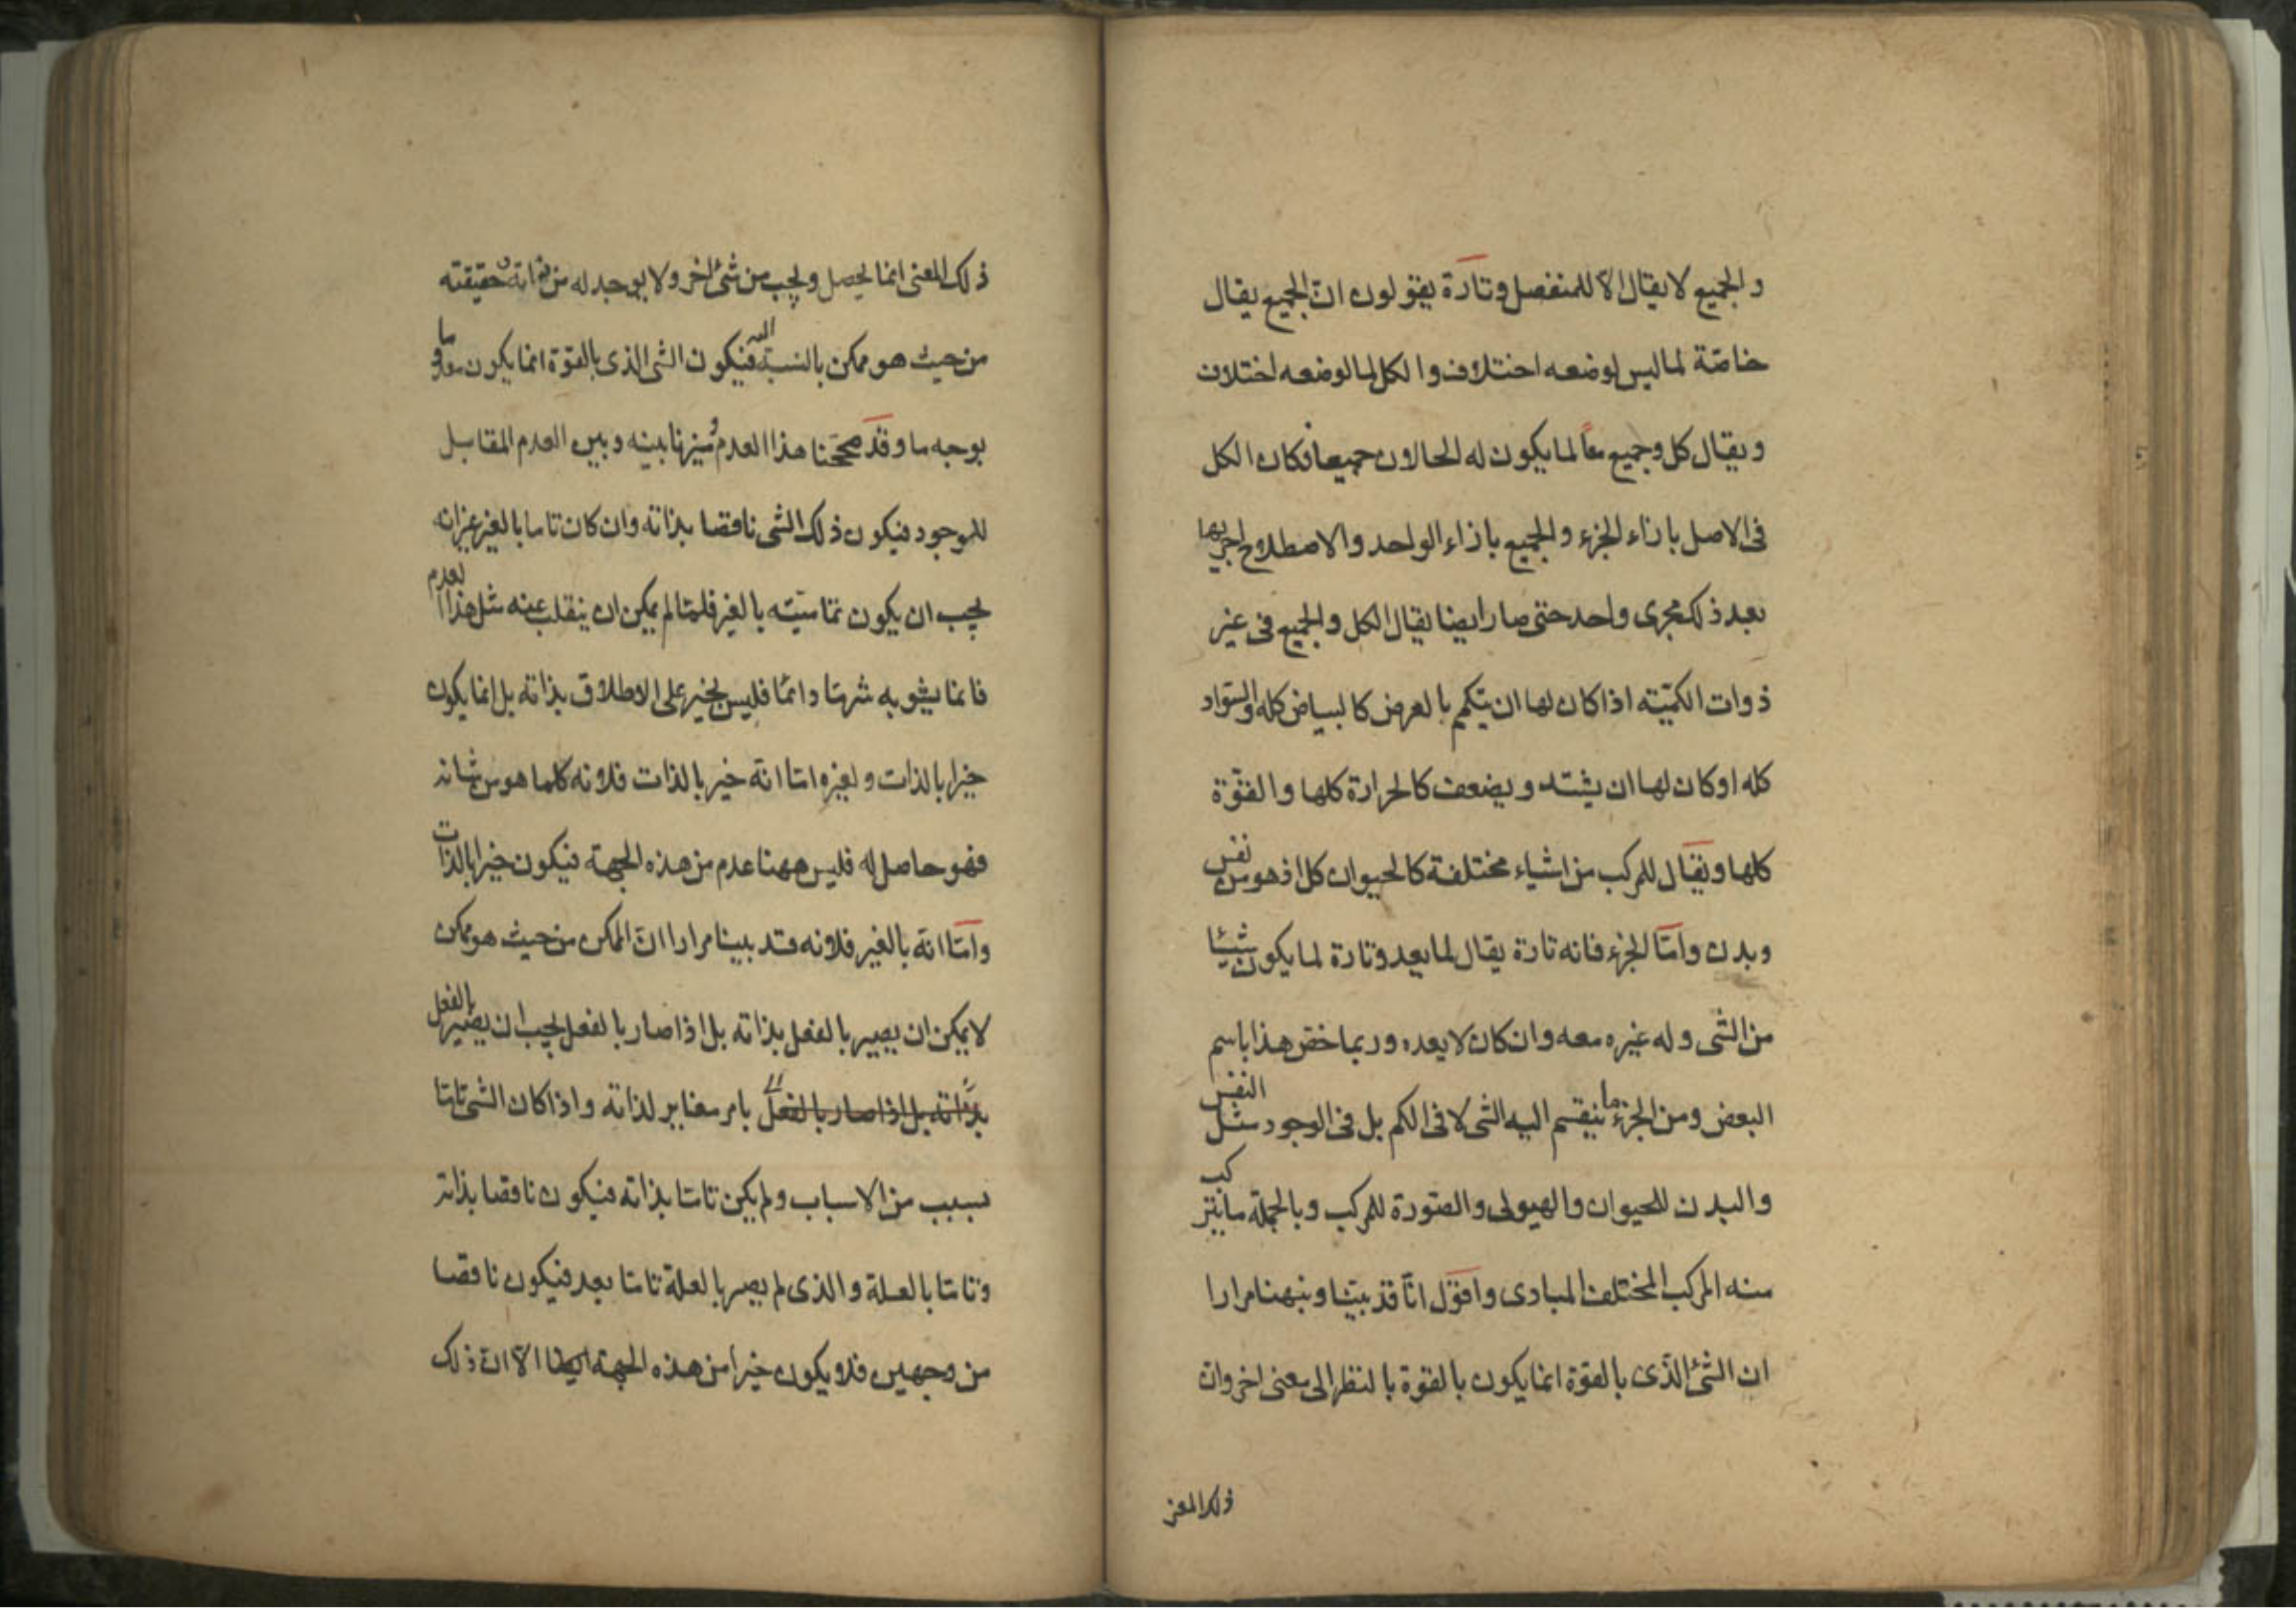 والجميع لا يقال الّا للمنفصل وتارة يقولون انّ الجميع يقال
خاصّة لما ليس لوضعه اختلاف والكل لما لوضعه اختلاف
ويقال كل وجميع معاً لما يكون له الحالان جميعا فكان الكل
فى الاصل بازاء الجزء والجميع بازاء الواحد والاصطلاح اجريهما
بعد ذلك مجرى واحد حتى صار ايضا يقال الكل والجميع فى غير
ذوات الكميّته اذا كان لها ان يتكمم بالعرض كالبياض كله والسّواد
كله او كان لها ان يشتد ويضعف كالحرارة كلها والقوّة
كلها ويقال للمركب من اشياء مختلفة كالحيوان كل اذ هو من نفس
وبدن وامّا الجزء فانه تارة يقال لما يعد وتارة لما يكون شيئا
من الشى وله غيره معه وان كان لا يعده وربما خص هذا باسم
البعض ومن الجزء ما ينقسم اليه الشى لا فى الكم بل فى الوجود مثل النفس
والبدن للحيوان والهيولى والصّورة للمركب وبالجملة ما يتركب
منه المركب المختلف المبادى واقول انّا قد بيّنا ونبهنا مرارا
ان الشئ الّذى بالقوّة انما يكون بالقوة بالنظر الى معنى اخر وانّ
ذلك المعنى
ذلك المعنى انما يحصل ويجب من شئ اخر ولا يوجد له من ذاته وحقيقته
من حيث هو ممكن بالنسبة اليه فيكون الشى الذى بالقوّة انما يكون معدوما
بوجه ما وقد صحّحنا هذا العدم وميزنا بينه وبين العدم المقابل
للموجود فيكون ذلك الشى ناقصا بذاته وان كان تاما بالغير غير انه
يجب ان يكون تماميّته بالغير فلمّا لم يمكن ان ينقلب عينه مثل هذا العدم
فانما يشوبه شرمّا دائمّا فليس بخير على الاطلاق بذاته بل انما يكون
خيرا بالذات ولغيره امّا انّه خير بالذات فلانه كلما هو من شانه
فهو حاصل له فليس ههنا عدم من هذه الجهة فيكون خيرا بالذات
وامّا انّه بالغير فلانه قد بينا مرارا انّ الممكن من حيث هو ممكن
لا يمكن ان يصير بالفعل بذاته بل اذا صار بالفعل يجب ان يصير بالفعل
بذاته بل اذا صار بالفعل بامر مغاير لذاته واذا كان الشى تامّا
بسبب من الاسباب ولم يكن تامّا بذاته فيكون ناقصا بذاته
وتامّا بالعلة والذى لم يصر بالعلة تامّا بعد فيكون ناقصا
من وجهين فلا يكون خيرا من هذه الجهة ايضا الّا انّ ذلك